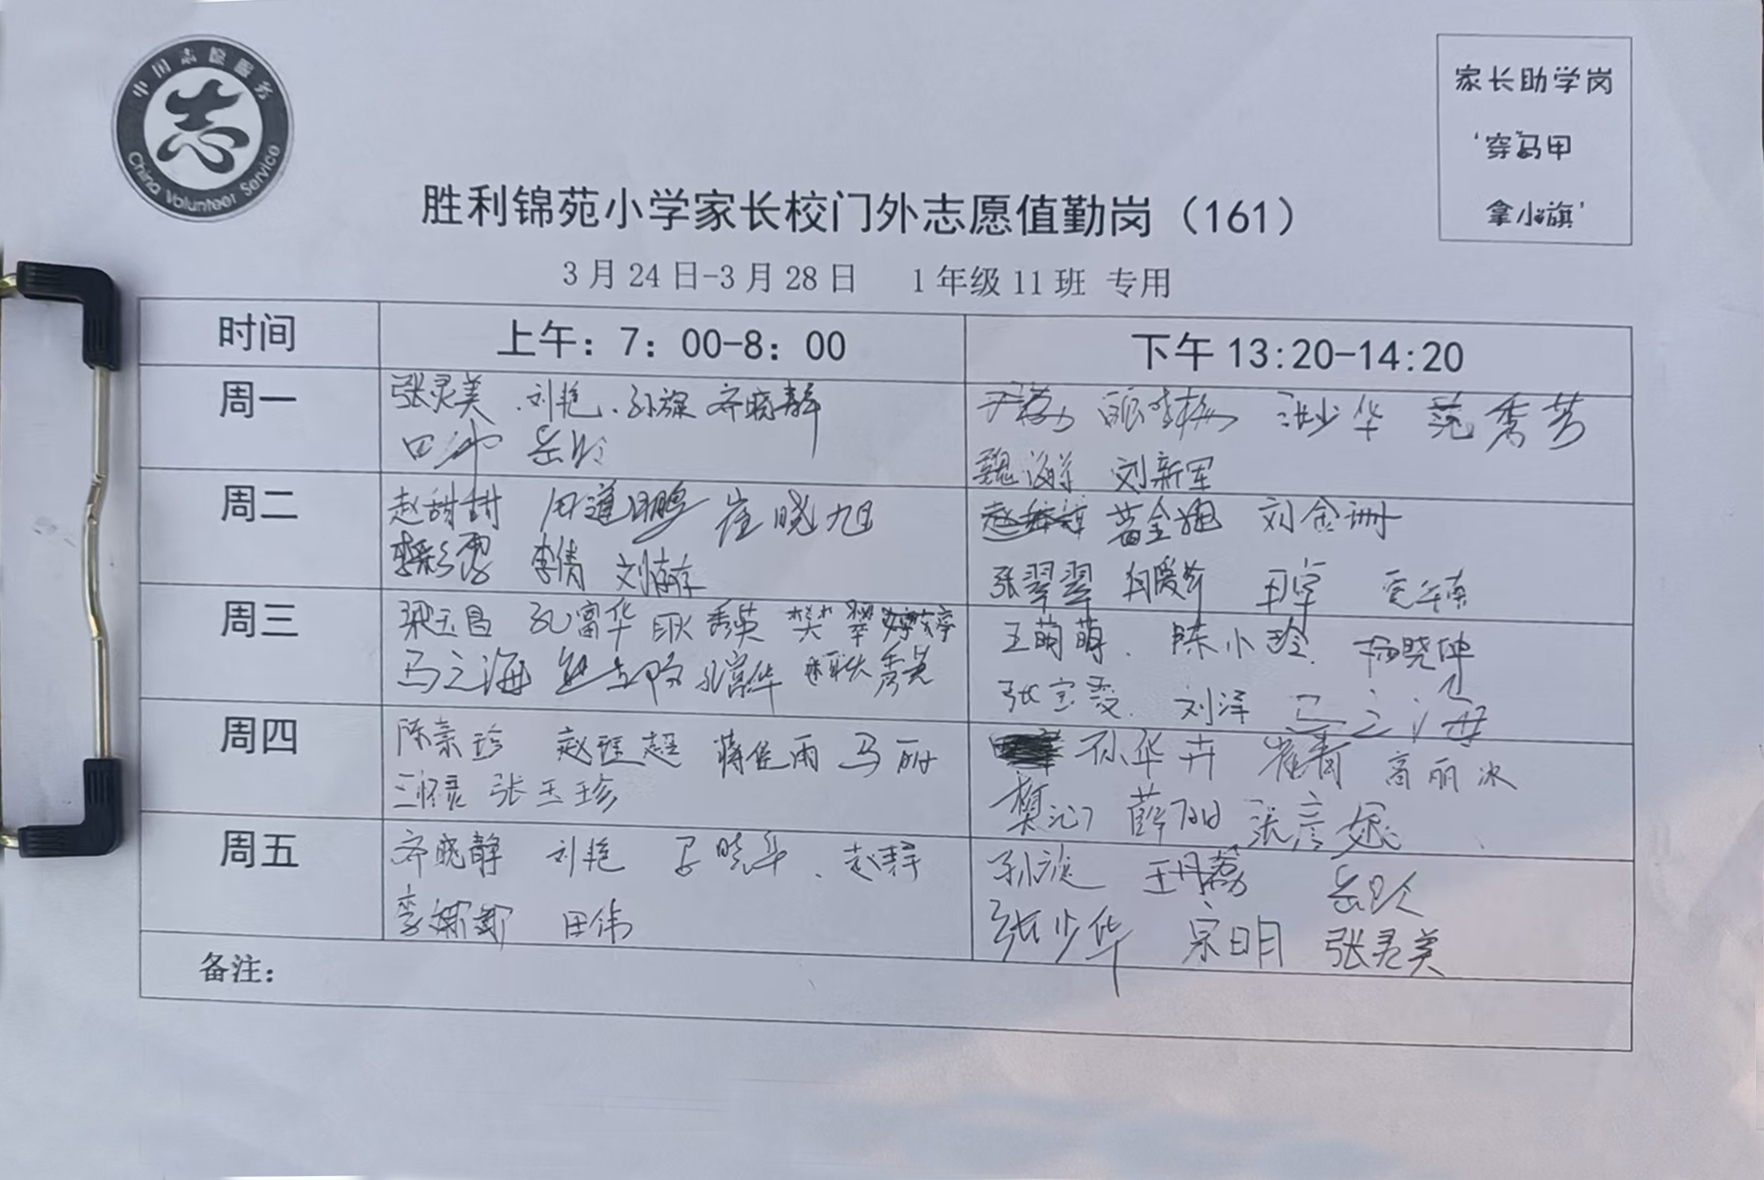 中国志愿服务
志
China Volunteer Service
家长助学岗
'穿马甲
拿小旗'
胜利锦苑小学家长校门外志愿值勤岗（161）
3月24日-3月28日 1年级11班 专用
时间 上午：7：00-8：00 下午13:20-14:20
周一
张灵美 刘艳 孙旋 齐晓静
张少华 范秀芳
魏海军 刘新军
周二
赵甜甜 田道鹏 崔晓旭
李彩霞 李倩
苗金娟 刘金洲
张翠翠
周三
梁玉昌 孔富华 耿秀英 樊翠婷
马之海 孔富华 耿秀英
王萌萌 陈小玲 杨晓坤
张宝霞 刘泽 马之海
周四
陈素珍 蒋佳雨 马丽
张玉珍
孙华卉 崔青 高丽冰
樊沁 薛阳 张彦妮
周五
齐晓静 刘艳
李娜娜 田伟
孙旋 王丹荔 岳
张少华 宋明 张灵美
备注：